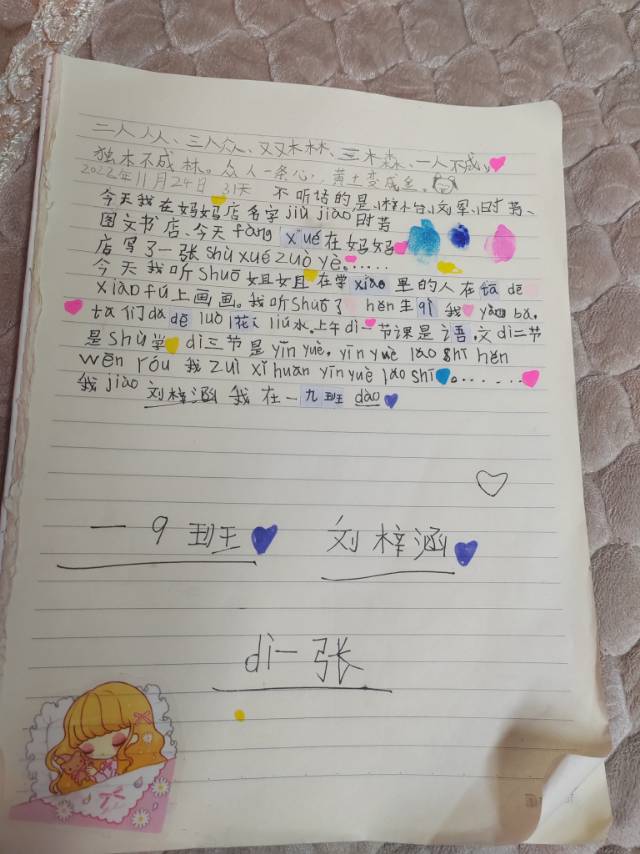 二人从、三人众、双木林、三木森、一人不成、
独木不成林。众人一条心,黄土变成金。
2022年11月24日 31天 不听话的是小样小台小刘军小时芳、
今天我在妈妈店名字jiù jiào时芳
图文书店、今天fàng xué在妈妈
店写了一张shù xué zuò yè。......
今天我听shuō姐姐在学xiào里的人在tā dē
xiào fú上画画。我听shuō了hěn生qì我yào bǎ,
tā 们dǎ dē luò花liú水。上午dì一节课是语文dì二节
是shù学dì三节是yīn yuè,yīn yuè lǎo shī hěn
wēn róu 我zuì xǐ huān yīn yuè lǎo shī。......
我jiào刘梓涵我在一九班dào
一9班 刘梓涵
dì一张